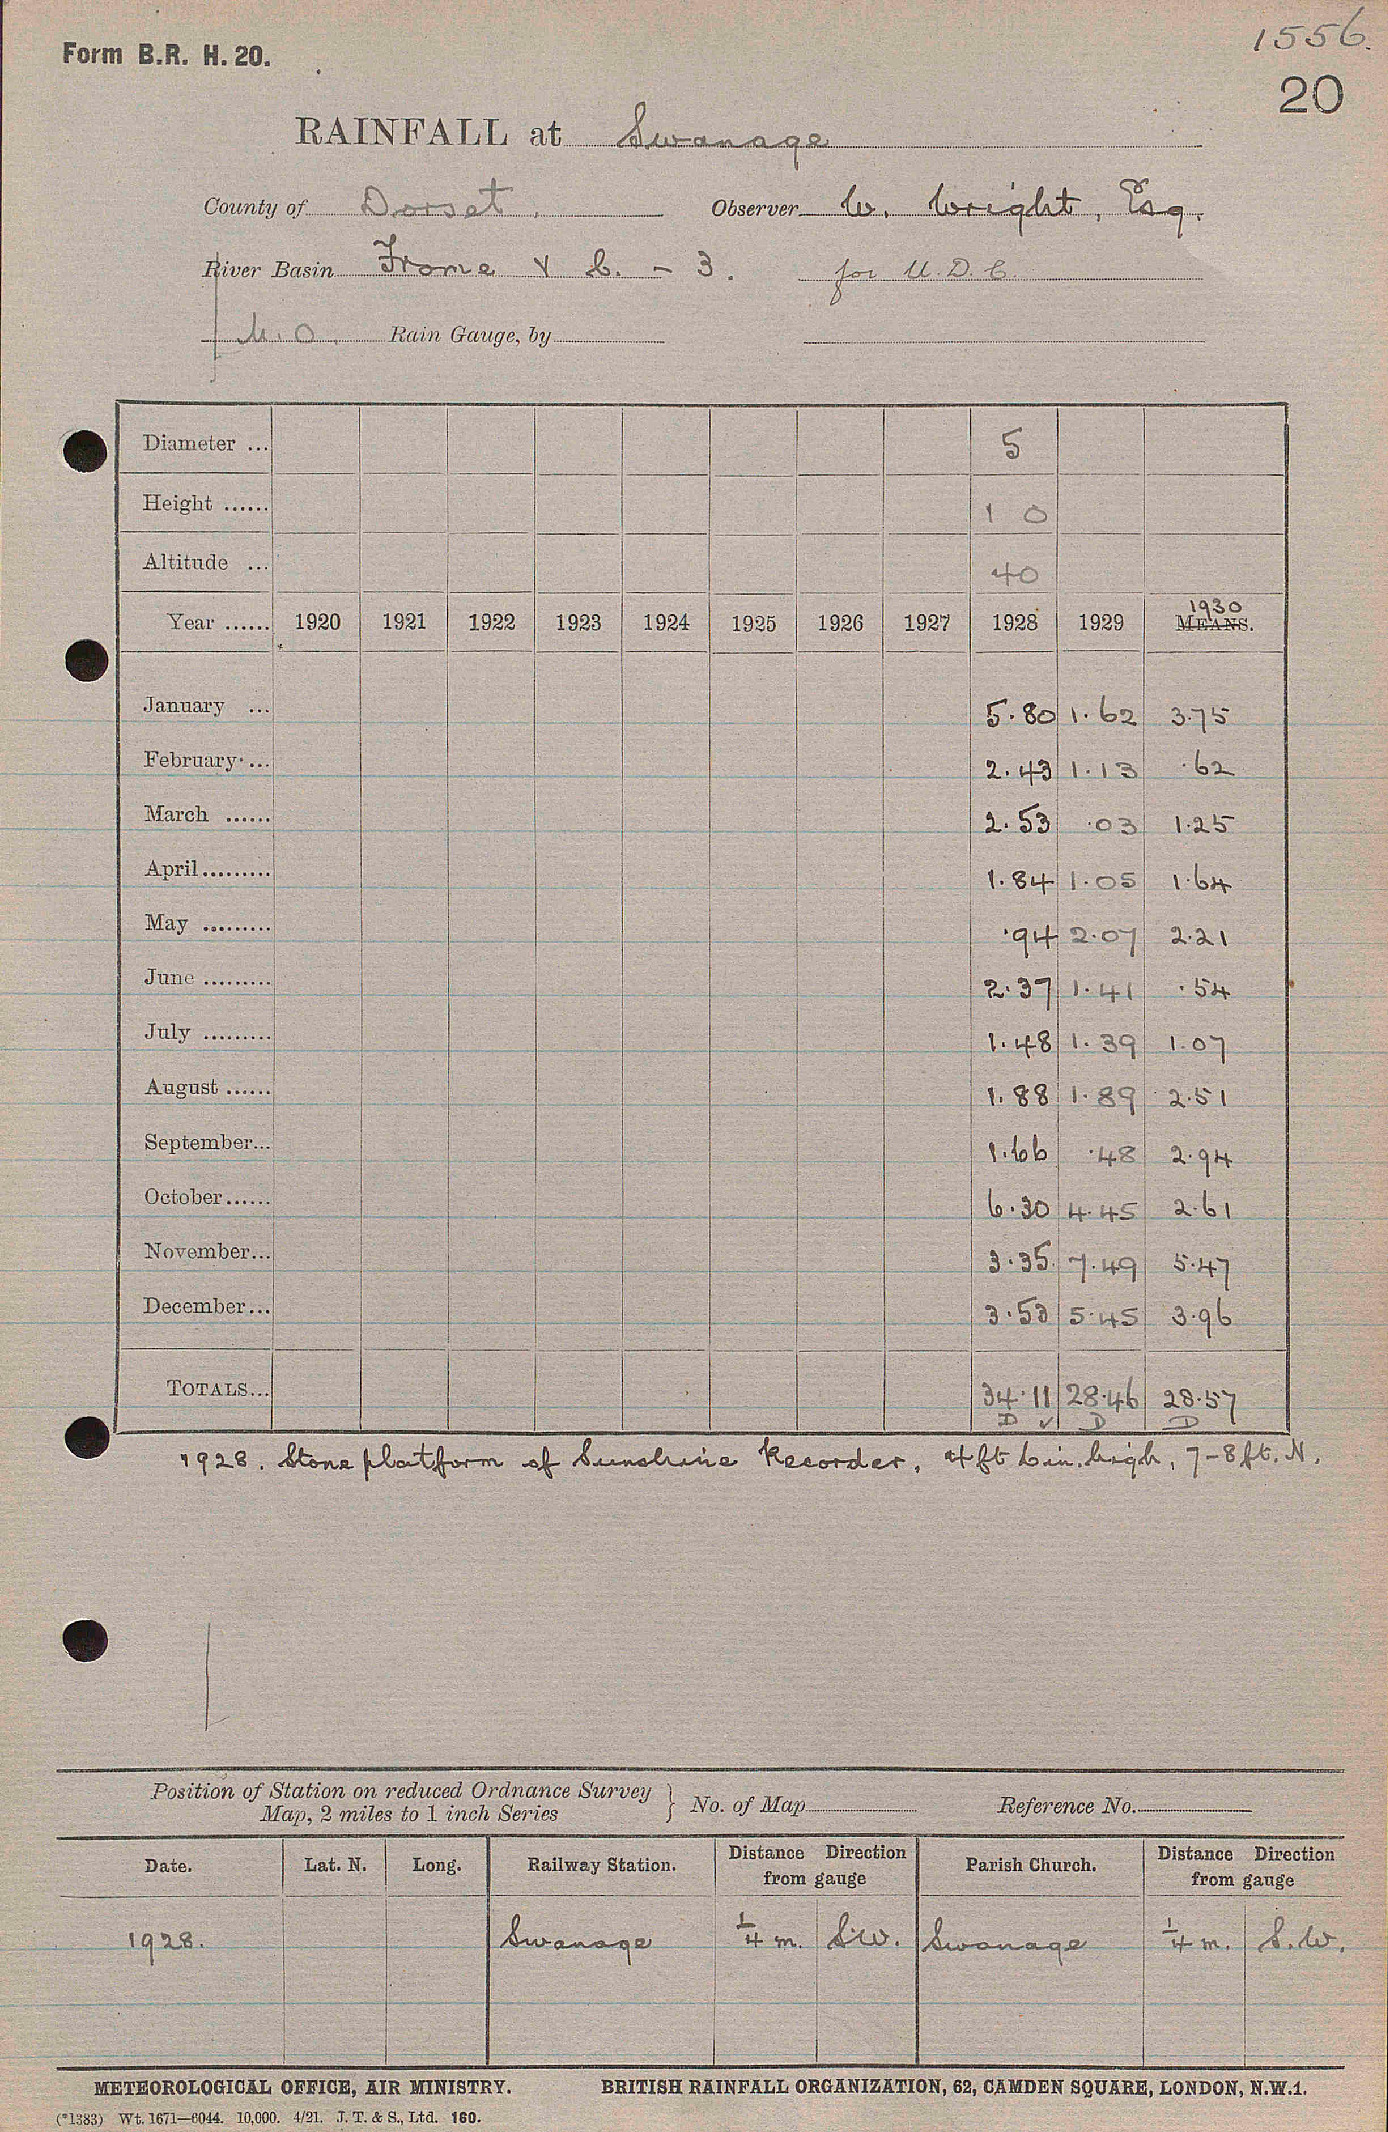 1556.
Form B.R. H. 20.
20
RAINFALL at Swanage
County of Dorset. Observer W. Wright, Esq.
River Basin Frome & C. - 3. for U.D.C.
M.O. Rain Gauge, by
Diameter ... 5
Height ...... 1 0
Altitude ... 40
Year ...... 1920 1921 1922 1923 1924 1925 1926 1927 1928 1929 1930 MEANS.
January ... 5.80 1.62 3.75
February ... 2.43 1.13 .62
March ...... 2.53 .03 1.25
April ......... 1.84 1.05 1.64
May ......... .94 2.07 2.21
June ......... 2.37 1.41 .54
July ......... 1.48 1.39 1.07
August ...... 1.88 1.89 2.51
September... 1.66 .48 2.94
October...... 6.30 4.45 2.61
November... 3.35 7.49 5.47
December... 3.53 5.45 3.96
TOTALS... 34.11 28.46 28.57
D ✓ D D
1928. Stone platform of Sunshine Recorder, 4ft 6in. high, 7-8ft. N.
Position of Station on reduced Ordnance Survey
Map, 2 miles to 1 inch Series } No. of Map Reference No.
Date. Lat. N. Long. Railway Station. Distance Direction from gauge Parish Church. Distance Direction from gauge
1928. Swanage 1/4 m. S.W. Swanage 1/4 m. S.W.
METEOROLOGICAL OFFICE, AIR MINISTRY. BRITISH RAINFALL ORGANIZATION, 62, CAMDEN SQUARE, LONDON, N.W.1.
(*1383) Wt. 1671—6044. 10,000. 4/21. J. T. & S., Ltd. 160.